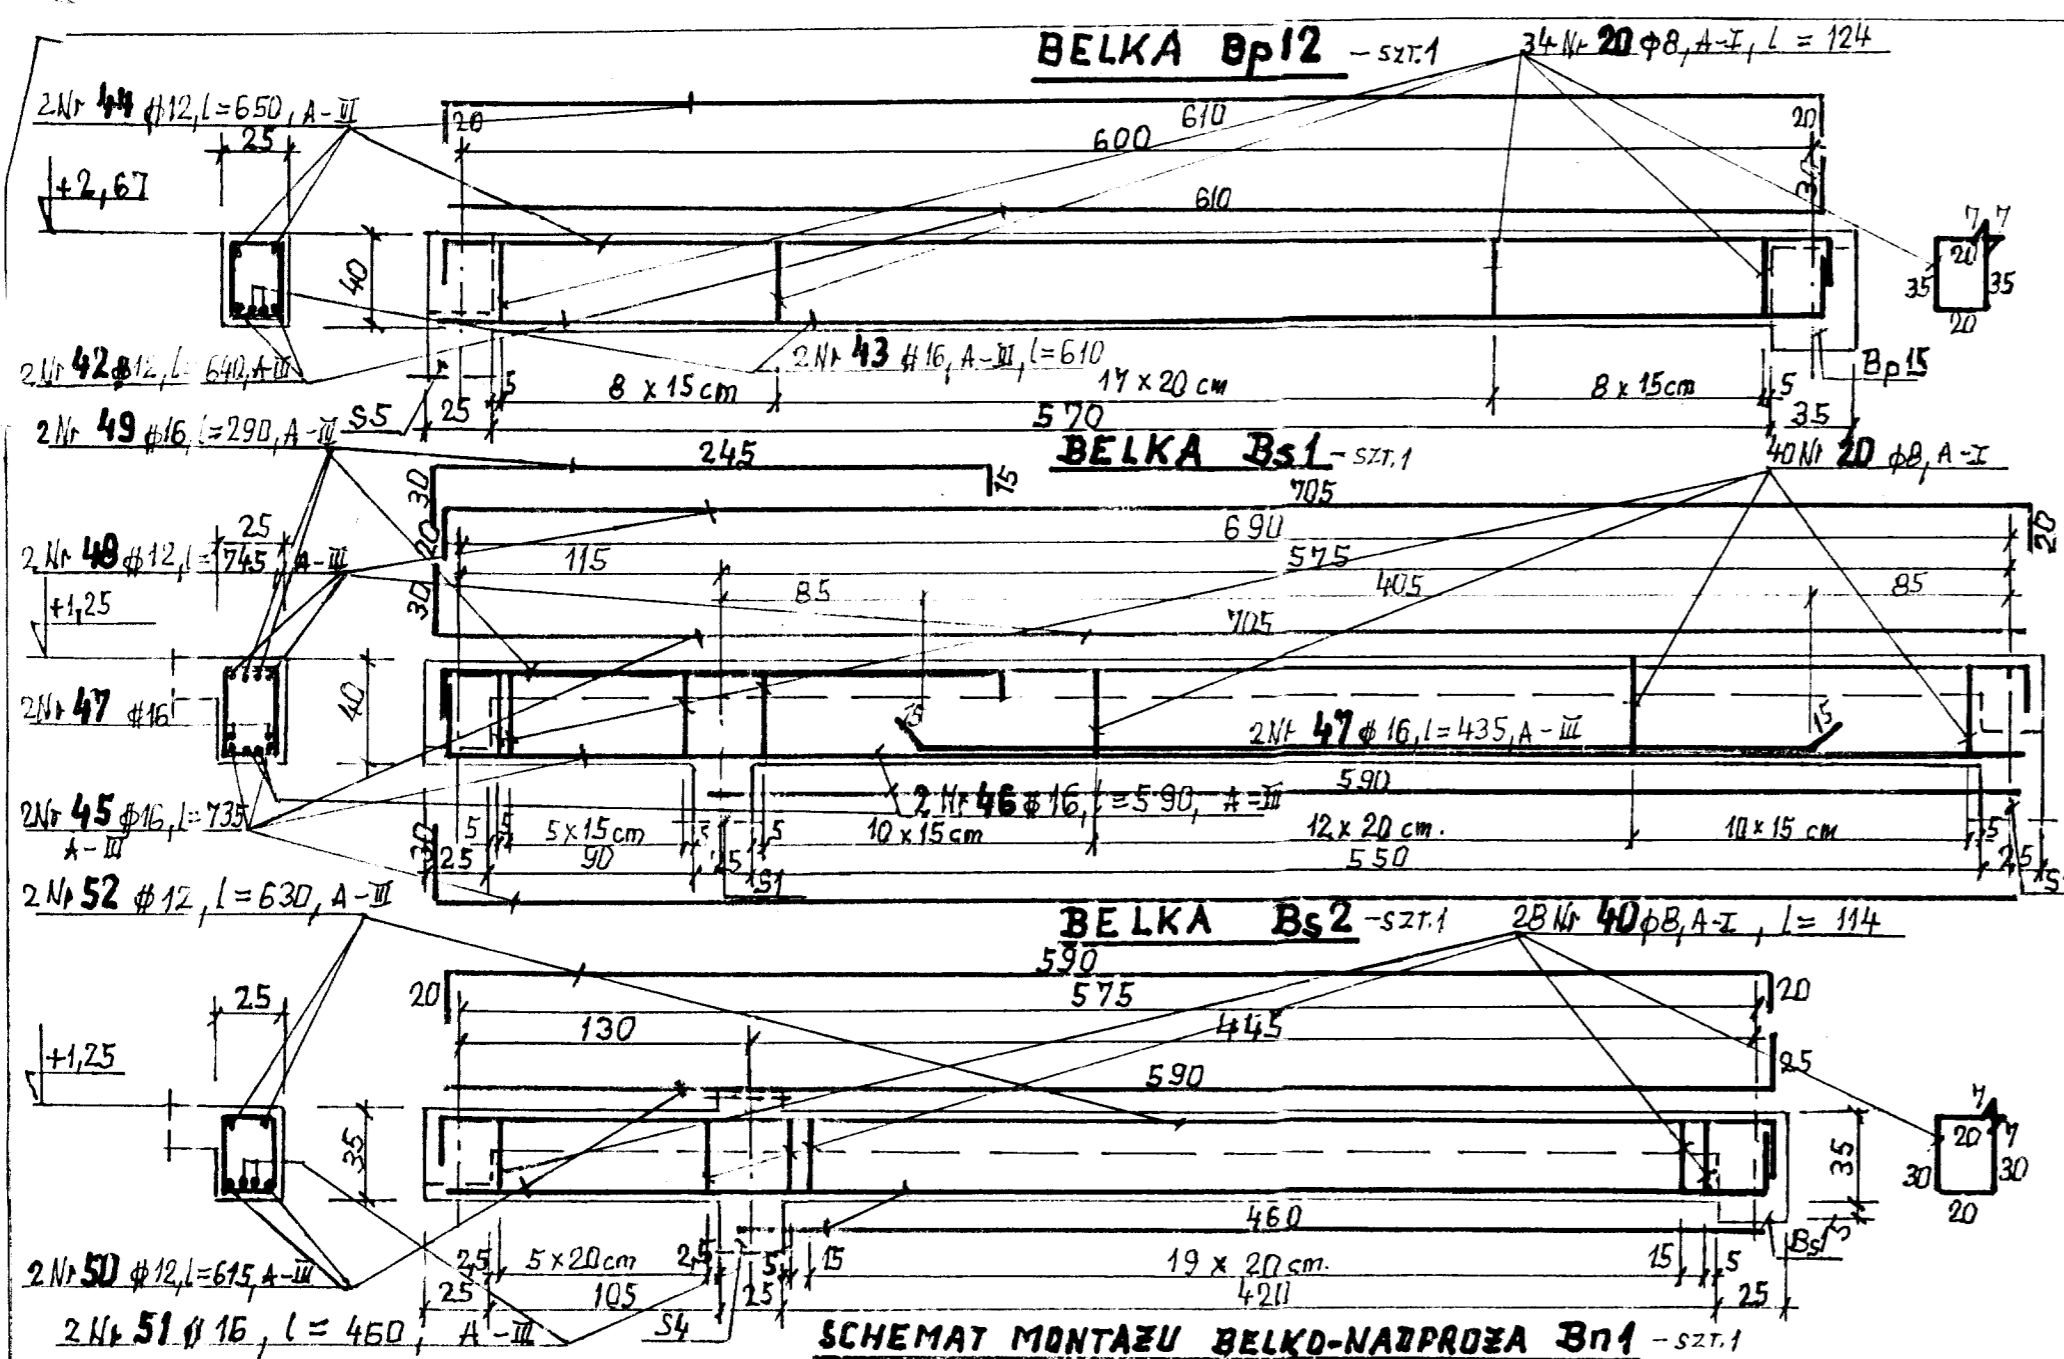 BELKA Bp12 - SZT.1
34 Nr 20 ϕ8, A-I, l = 124
2 Nr 44 #12, l=650, A-III
20
610
20
600
25
+2,67
30
610
7 7
20
35
35
20
40
2 Nr 42 #12, l=640, A-III
2 Nr 43 #16, A-III, l=610
Bp15
5
8 x 15 cm
17 x 20 cm
8 x 15cm
5
25
570
35
S5
2 Nr 49 #16, l=290, A-III
BELKA Bs1 - SZT.1
40 Nr 20 ϕ8, A-I
245
30
15
705
20
690
20
25
2 Nr 48 #12, l=745, A-III
115
575
85
405
85
+1,25
30
705
40
2 Nr 47 #16
15
2 Nr 47 #16, l=435, A-III
15
590
2 Nr 46 #16, l=590, A-III
2 Nr 45 #16, l=735
A-III
5
5
5 x 15 cm
5
5
10 x 15 cm
12 x 20 cm.
10 x 15 cm
5
30
25
90
25
550
25
S1
2 Nr 52 #12, l=630, A-III
BELKA Bs2 - SZT.1
28 Nr 40 ϕ8, A-I, l = 114
590
20
575
20
25
130
445
+1,25
590
25
7
20
7
30
30
20
35
35
460
5
Bs1
2 Nr 50 #12, l=615, A-III
2,5
5 x 20 cm
2,5
5
15
19 x 20 cm.
15
5
25
105
25
420
25
2 Nr 51 # 16, l = 460, A-III
S4
SCHEMAT MONTAŻU BELKO-NADPROŻA Bn1 - SZT.1